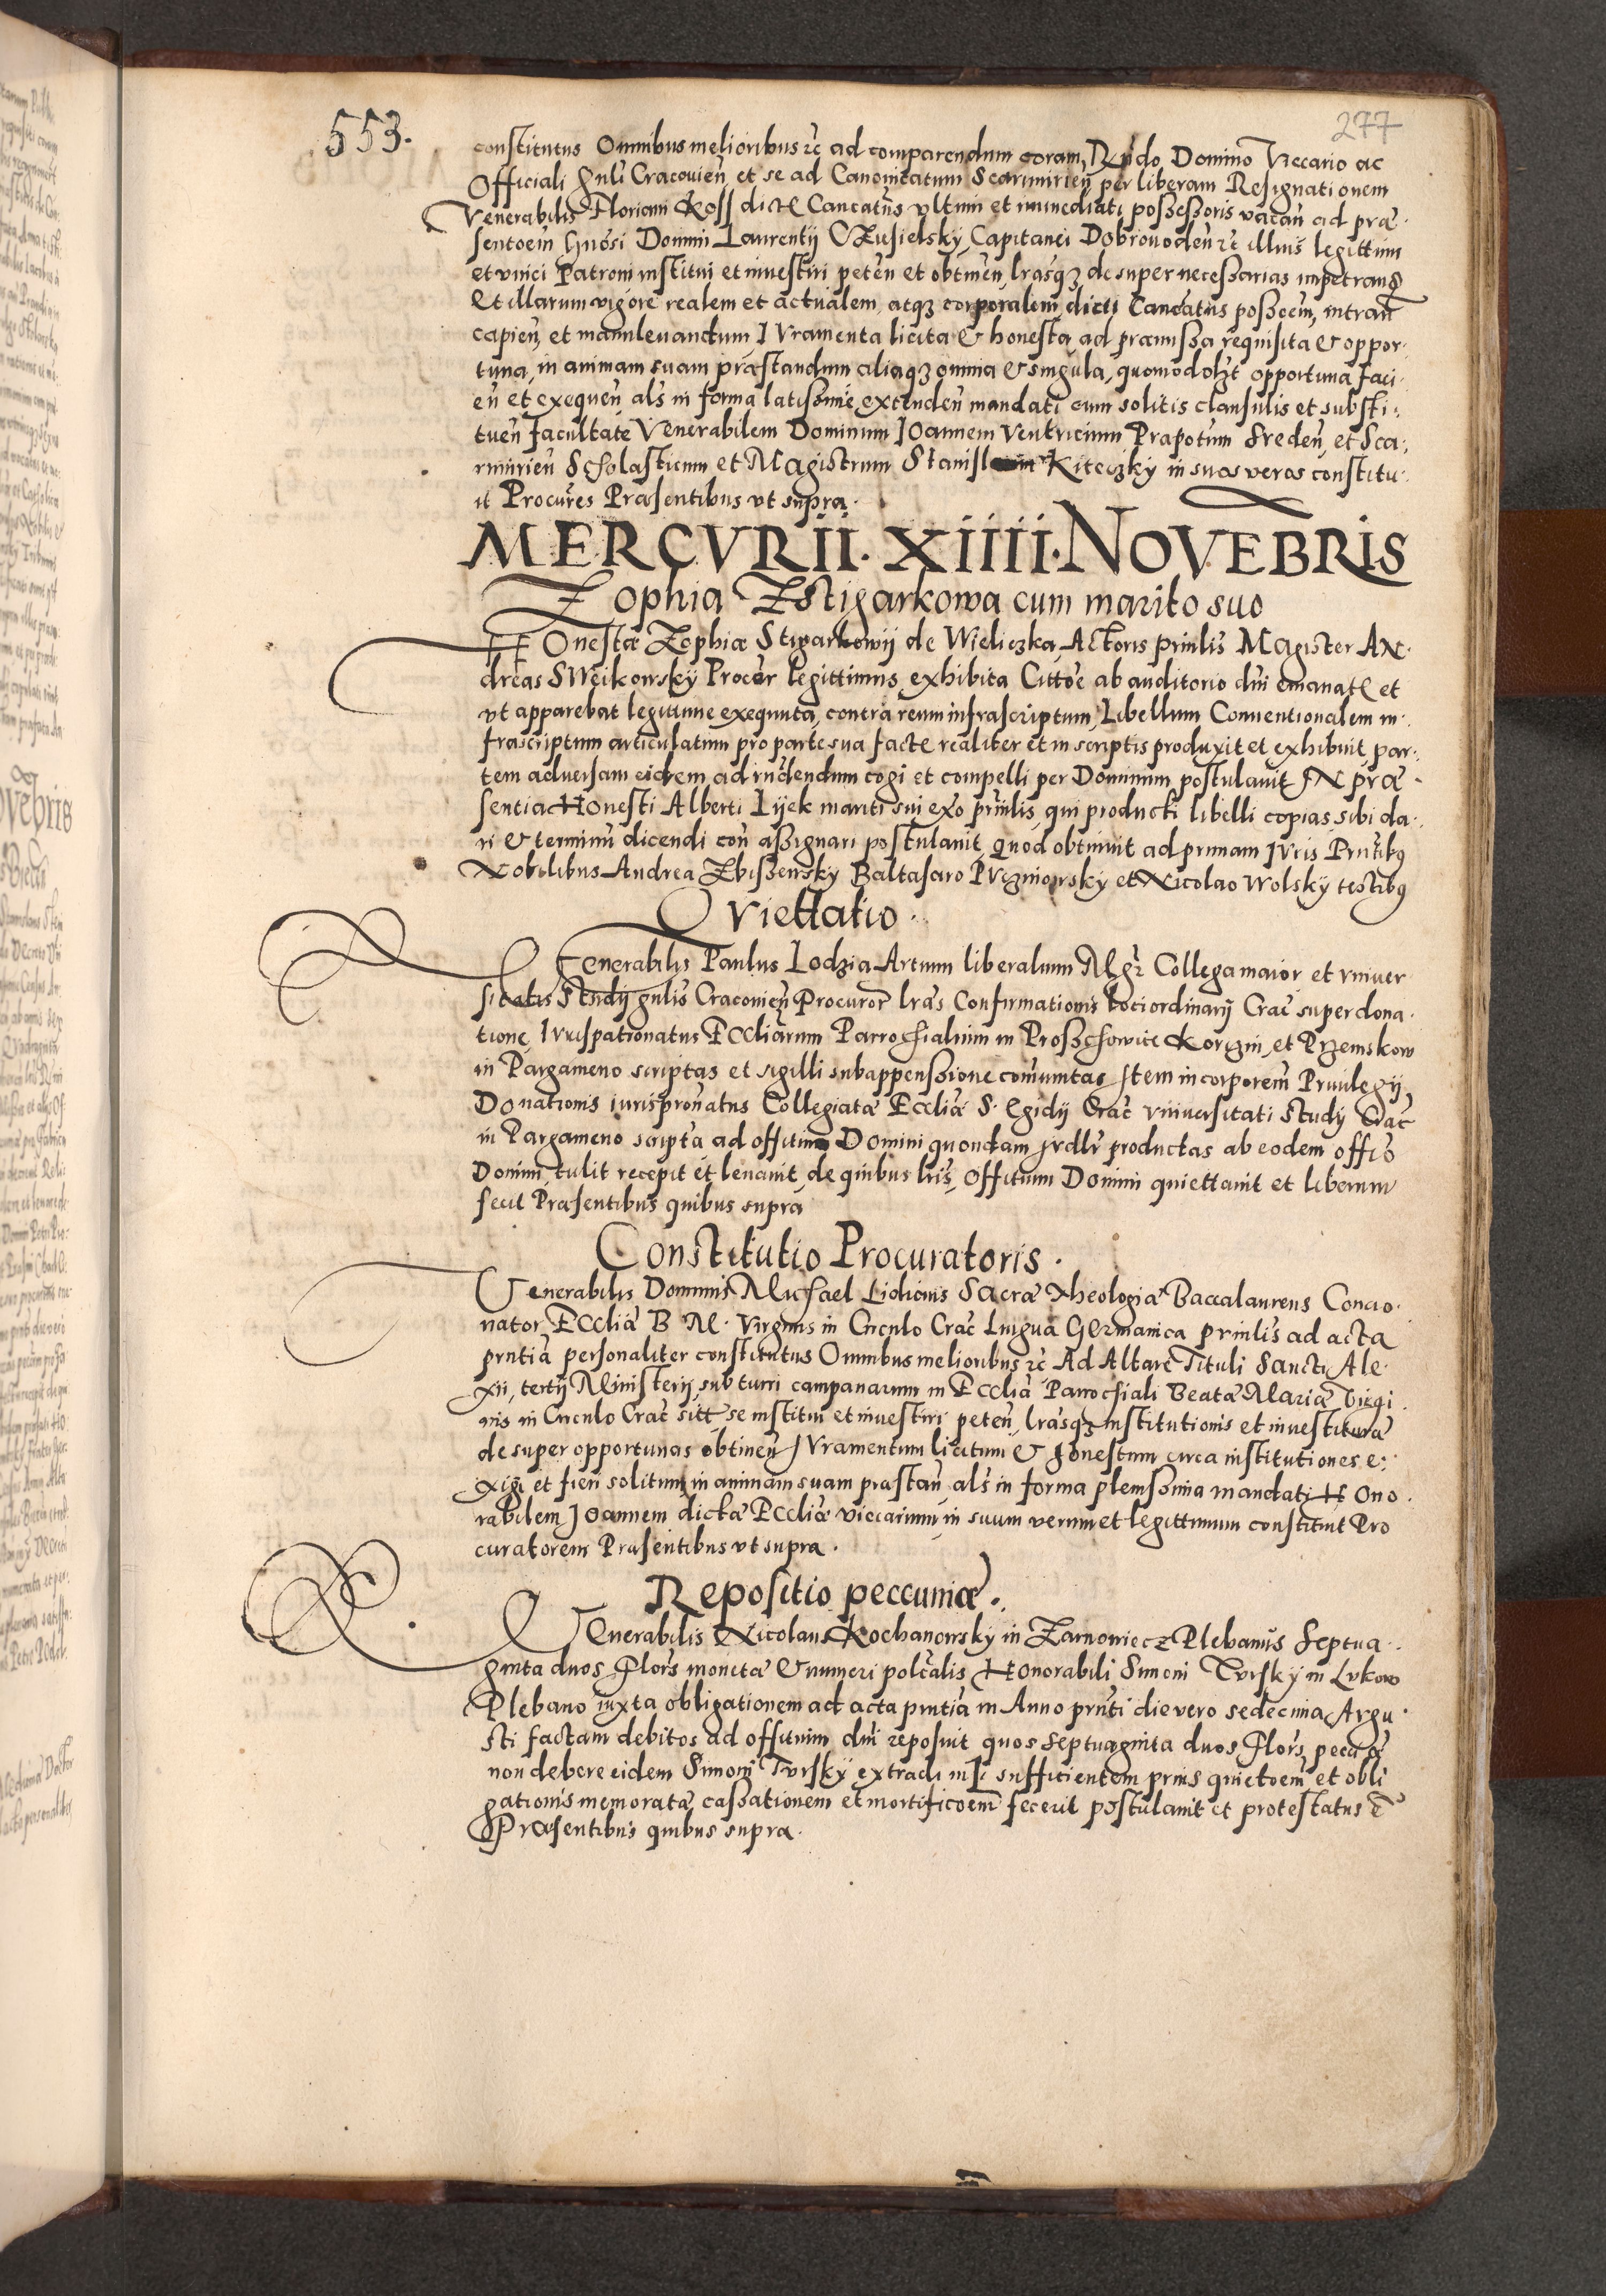 553.
277
constitutus Omnibus melioribus ꝛc̃ ad comparendum coram Rñdo Domino Viccario ac
Officiali gñli Cracovieñ et se ad Canonicatum Scarimirieñ per liberam Resignationem
Venerabilis Floriani Koss dictę Cancatus vltimi et immediati possessoris vacañ ad præ
sentoem Gnosi Domini Laurentij CZusielsky Capitanei Dobrouodeñ ꝛc̃ illius legittimi
et vnici Patroni institui et inuestiri peteñ et obtineñ lrasqꝫ de super necessarias impetrañ
Et illarum vigore realem et actualem atqꝫ corporalem dicti Cancatus possoem, intrañ
capieñ et manulevandum IVramenta licita & honesta, ad præmissa requisita & oppor
tuna, in animam suam præstandum aliaqꝫ omnia & singula, quomodolꝫt opportuna faci
eñ et exequeñ als in forma latissime extendeñ mandati cum solitis clausulis et substi
tueñ facultate Venerabilem Dominum Ioannem Ventricium Præpotum Sredeñ, et Sca
rmirieñ Scholasticum et Magistrum Stanislaum Kiteczky in suos veros constitu
it Procures Præsentibus vt supra.
MERCVRII. XIIII. NOVEBRIS
Zophia Zstigarkowa cum marito suo
HOnestæ Zophiæ Stigarkowij de Wieliczka Actoris prinlis Magister AN
dreas SWeikowsky Procer legittimus exhibita Cittoe ab auditorio dñi emanatę et
vt apparebat legitime exequuta, contra reum infrascriptum, Libellum Conuentionalem in
frascriptum articulatum pro parte sua factę realiter et in scriptis produxit et exhibuit, par
tem adversam eidem ad rñdendum cogi et compelli per Dominum postulauit IN præ
sentia Honesti Alberti Lijek mariti sui exo prinlis, qui producti libelli copias sibi da
ri & terminũ dicendi coñ assignari postulauit, Quod obtinuit ad primam Iuris Prntibꝫ
Nobilibus Andrea Zbiszewsky Baltasaro PVzniowsky et Nicolao Wolsky testibꝫ
Qviettatio.
VEnerabilis Paulus Lodzia Artium liberalium Mgr̃ Collega maior et vniuer
sitatis Studij gnlis Cracovieñ Procuror lras Confirmationis lociordinarij Crac̃ super dona
tione Iurispatronatus Eccliarum Parrochialium in Proszchowice Korizin, et Przemskow
in Pargameno scriptas et sigilli subappenssione comunitas Item in corporem Priuilegij
Donationis iurispronatus Collegiatæ Eccliæ S. Egidij Crac̃ vniuersitati Study Crac̃
in Pargameno scripta ad offitium Domini quondam productas ab eodem offio
Domini, tulit recepit et leuauit, de quibus lris, Offitium Domini quiettauit et liberum
fecit Præsentibus quibus supra
Constitutio Procuratoris.
Venerabilis Dominus Michael Lidicius Sacræ Theologiæ Baccalaureus Concio
nator Eccliæ B M. Virginis in Circulo Crac̃ Lingua Germanica prinlis ad acta
prntia personaliter constitutus Omnibus melioribus ꝛc̃ Ad Altare Tituli Sancti Ale
xii, tertij Ministerij, sub turri campanarum in Ecclia Parrochiali Beatæ Mariæ Virgi
nis in Circulo Crac̃ sitt̃ se institui et inuestiri peteñ, lrasqꝫ institutionis et inuestituræ
de super opportunas obtineñ IVramentum licitum & honestum circa institutiones e
xigi et fieri solitum in animam suam præstañ als in forma plenissima mandati HOno
rabilem Ioannem dictæ Eccliæ viccarium in suum verum et legittimum constituit Pro
curatorem Præsentibus vt supra.
Repositio peccuniæ.
VEnerabilis Nicolaus Kochanowsky in Zarnowiecz Plebanus Septua
ginta duos Flors monetæ & numeri polcalis Honorabili Simoni Tursky in Lukow
Plebano iuxta obligationem ad acta prntia in Anno prnti die vero sedecima Augu
sti factam debitos ad offitium dñi reposuit quos septuaginta duos Flors pecuæ
non debere eidem Simoni Tursky extradi sufficientem prius quietoem et obli
gationis memoratæ cassationem et mortificoem fecerit postulauit et protestatus ẽ
Præsentibus quibus supra.